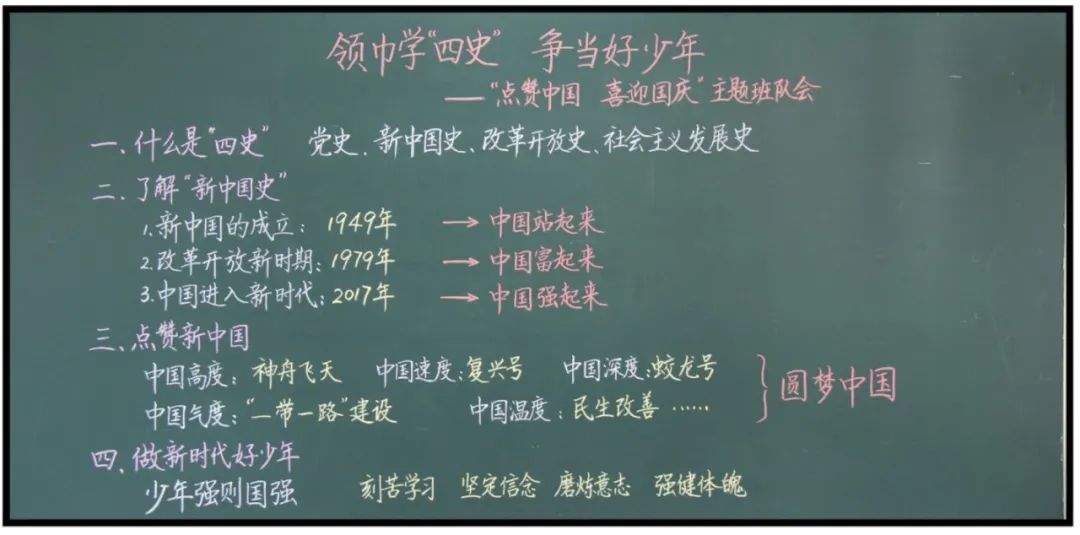 领巾学“四史” 争当好少年
——“点赞中国 喜迎国庆”主题班队会
一、什么是“四史” 党史、新中国史、改革开放史、社会主义发展史
二、了解“新中国史”
1.新中国的成立：1949年 → 中国站起来
2.改革开放新时期：1979年 → 中国富起来
3.中国进入新时代：2017年 → 中国强起来
三、点赞新中国
中国高度：神舟飞天 中国速度：复兴号 中国深度：蛟龙号
中国气度：“一带一路”建设 中国温度：民生改善……
圆梦中国
四、做新时代好少年
少年强则国强 刻苦学习 坚定信念 磨炼意志 强健体魄